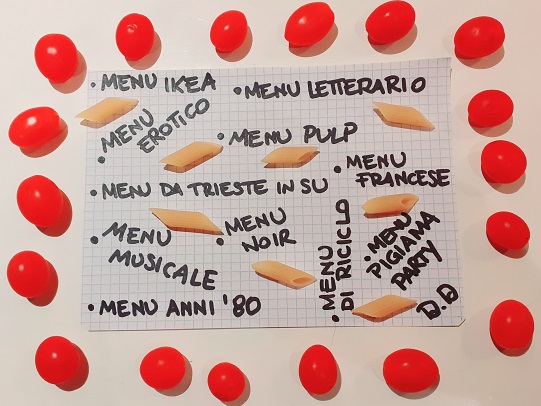 • MENU IKEA
• MENU LETTERARIO
• MENU
EROTICO
• MENU PULP
• MENU
FRANCESE
• MENU DA TRIESTE IN SU
• MENU
MUSICALE
• MENU
NOIR
• MENU
DI RICICLO
• MENU
PIGIAMA
PARTY
• MENU ANNI '80
D.D